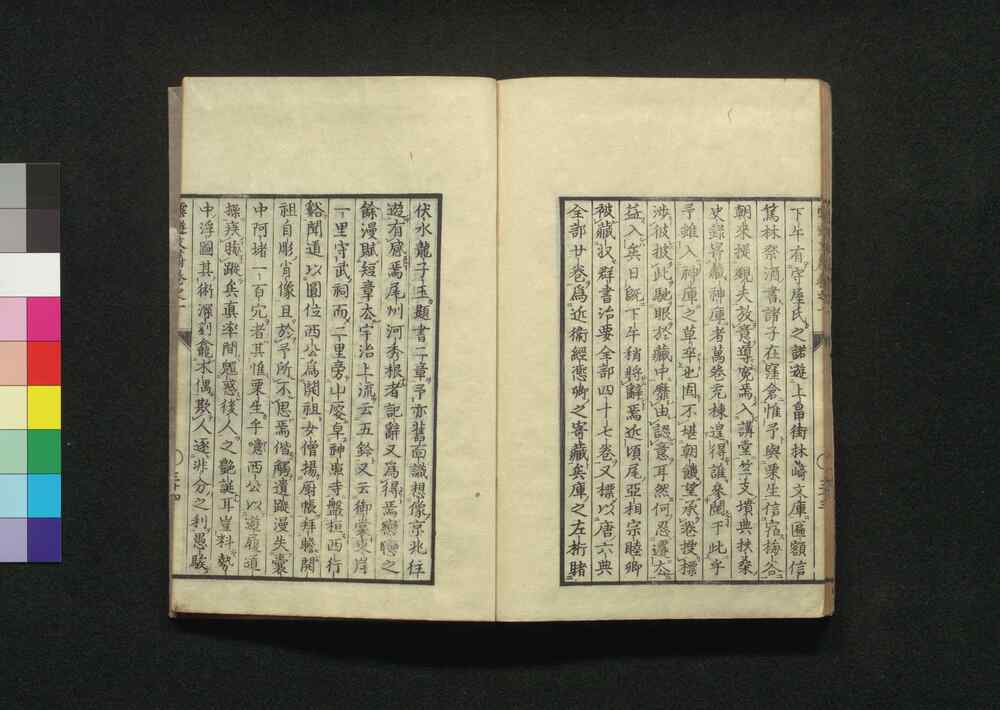 下午有守屋氏之諾遊上畠街林崎文庫匾額信
篤林祭酒書諸子在窪倉惟予與栗生信宿梅谷
朝來援觀夫放意導賓焉入講堂竺支墳典扶桒
史錄寄藏神庫者萬卷充棟遑得誰參閱于此乎
予雖入神庫之草卒也固不堪朝饑望承卷搜標
涉彼披此馳眼於藏中靡由認意耳然何忍遽太
益入矣日既下午稍將辭焉近頃尾亞相宗睦卿
被藏収群書治要全部四十七卷又標以唐六典
全部廿卷為近衛經凞卿之寄藏矣庫之左桁睹
伏水龍子玉題書二章予亦舊面識想像京北往
遊有感焉尾州河秀根者記辭又為得焉戀戀之
餘漫賦短章太宇治上流云五鈴又云御裳東岸
一里守武祠而二里旁山麼草神惠寺盤桓西行
谿聞道以圓位西公為開祖女僧揚廚帳拜瞻開
祖自彫肖像且於予所不思焉偕觴遺蹤漫失囊
中阿堵一百宂者其惟栗生乎噫西公以遊履道
操疾賤蹤矣真率間魍惑後人之艷誕耳豈料勢
中浮圖其術深到龕木偶欺人逐非分之利愚駭
三十四